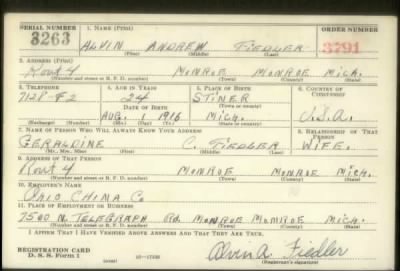 SERIAL NUMBER 1. NAME (Print) ORDER NUMBER
3263 ALVIN ANDREW FIEDLER 3791
(First) (Middle) (Last)
2. ADDRESS (Print)
Rout 4 MONROE MONROE MICH.
(Number and street or R. F. D. number) (Town) (County) (State)
3. TELEPHONE 4. AGE IN YEARS 5. PLACE OF BIRTH 6. COUNTRY OF CITIZENSHIP
7128-F2 24 STINER
DATE OF BIRTH (Town or county)
AUG. 1 1916 MICH. U.S.A.
(Exchange) (Number) (Mo.) (Day) (Yr.) (State or country)
7. NAME OF PERSON WHO WILL ALWAYS KNOW YOUR ADDRESS 8. RELATIONSHIP OF THAT PERSON
GERALDINE C. FIEDLER WIFE.
(Mr., Mrs., Miss) (First) (Middle) (Last)
9. ADDRESS OF THAT PERSON
Rout 4 MONROE MONROE MICH.
(Number and street or R. F. D. number) (Town) (County) (State)
10. EMPLOYER'S NAME
OHIO CHINA Co
11. PLACE OF EMPLOYMENT OR BUSINESS
7500 N. TELEGRAPH Rd. MONROE MONROE MICH.
(Number and street or R. F. D. number) (Town) (County) (State)
I AFFIRM THAT I HAVE VERIFIED ABOVE ANSWERS AND THAT THEY ARE TRUE.
REGISTRATION CARD
D. S. S. Form 1 (over) 16-17105 Alvin A. Fiedler
(Registrant's signature)